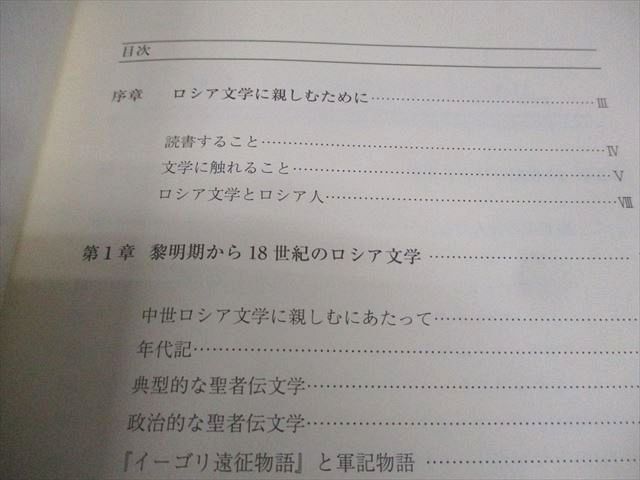 目次
序章 ロシア文学に親しむために……………………………Ⅲ
読書すること……………………………Ⅳ
文学に触れること……………………………Ⅴ
ロシア文学とロシア人……………………………Ⅷ
第1章 黎明期から18世紀のロシア文学……………………………
中世ロシア文学に親しむにあたって……………………………
年代記……………………………
典型的な聖者伝文学……………………………
政治的な聖者伝文学……………………………
『イーゴリ遠征物語』と軍記物語……………………………